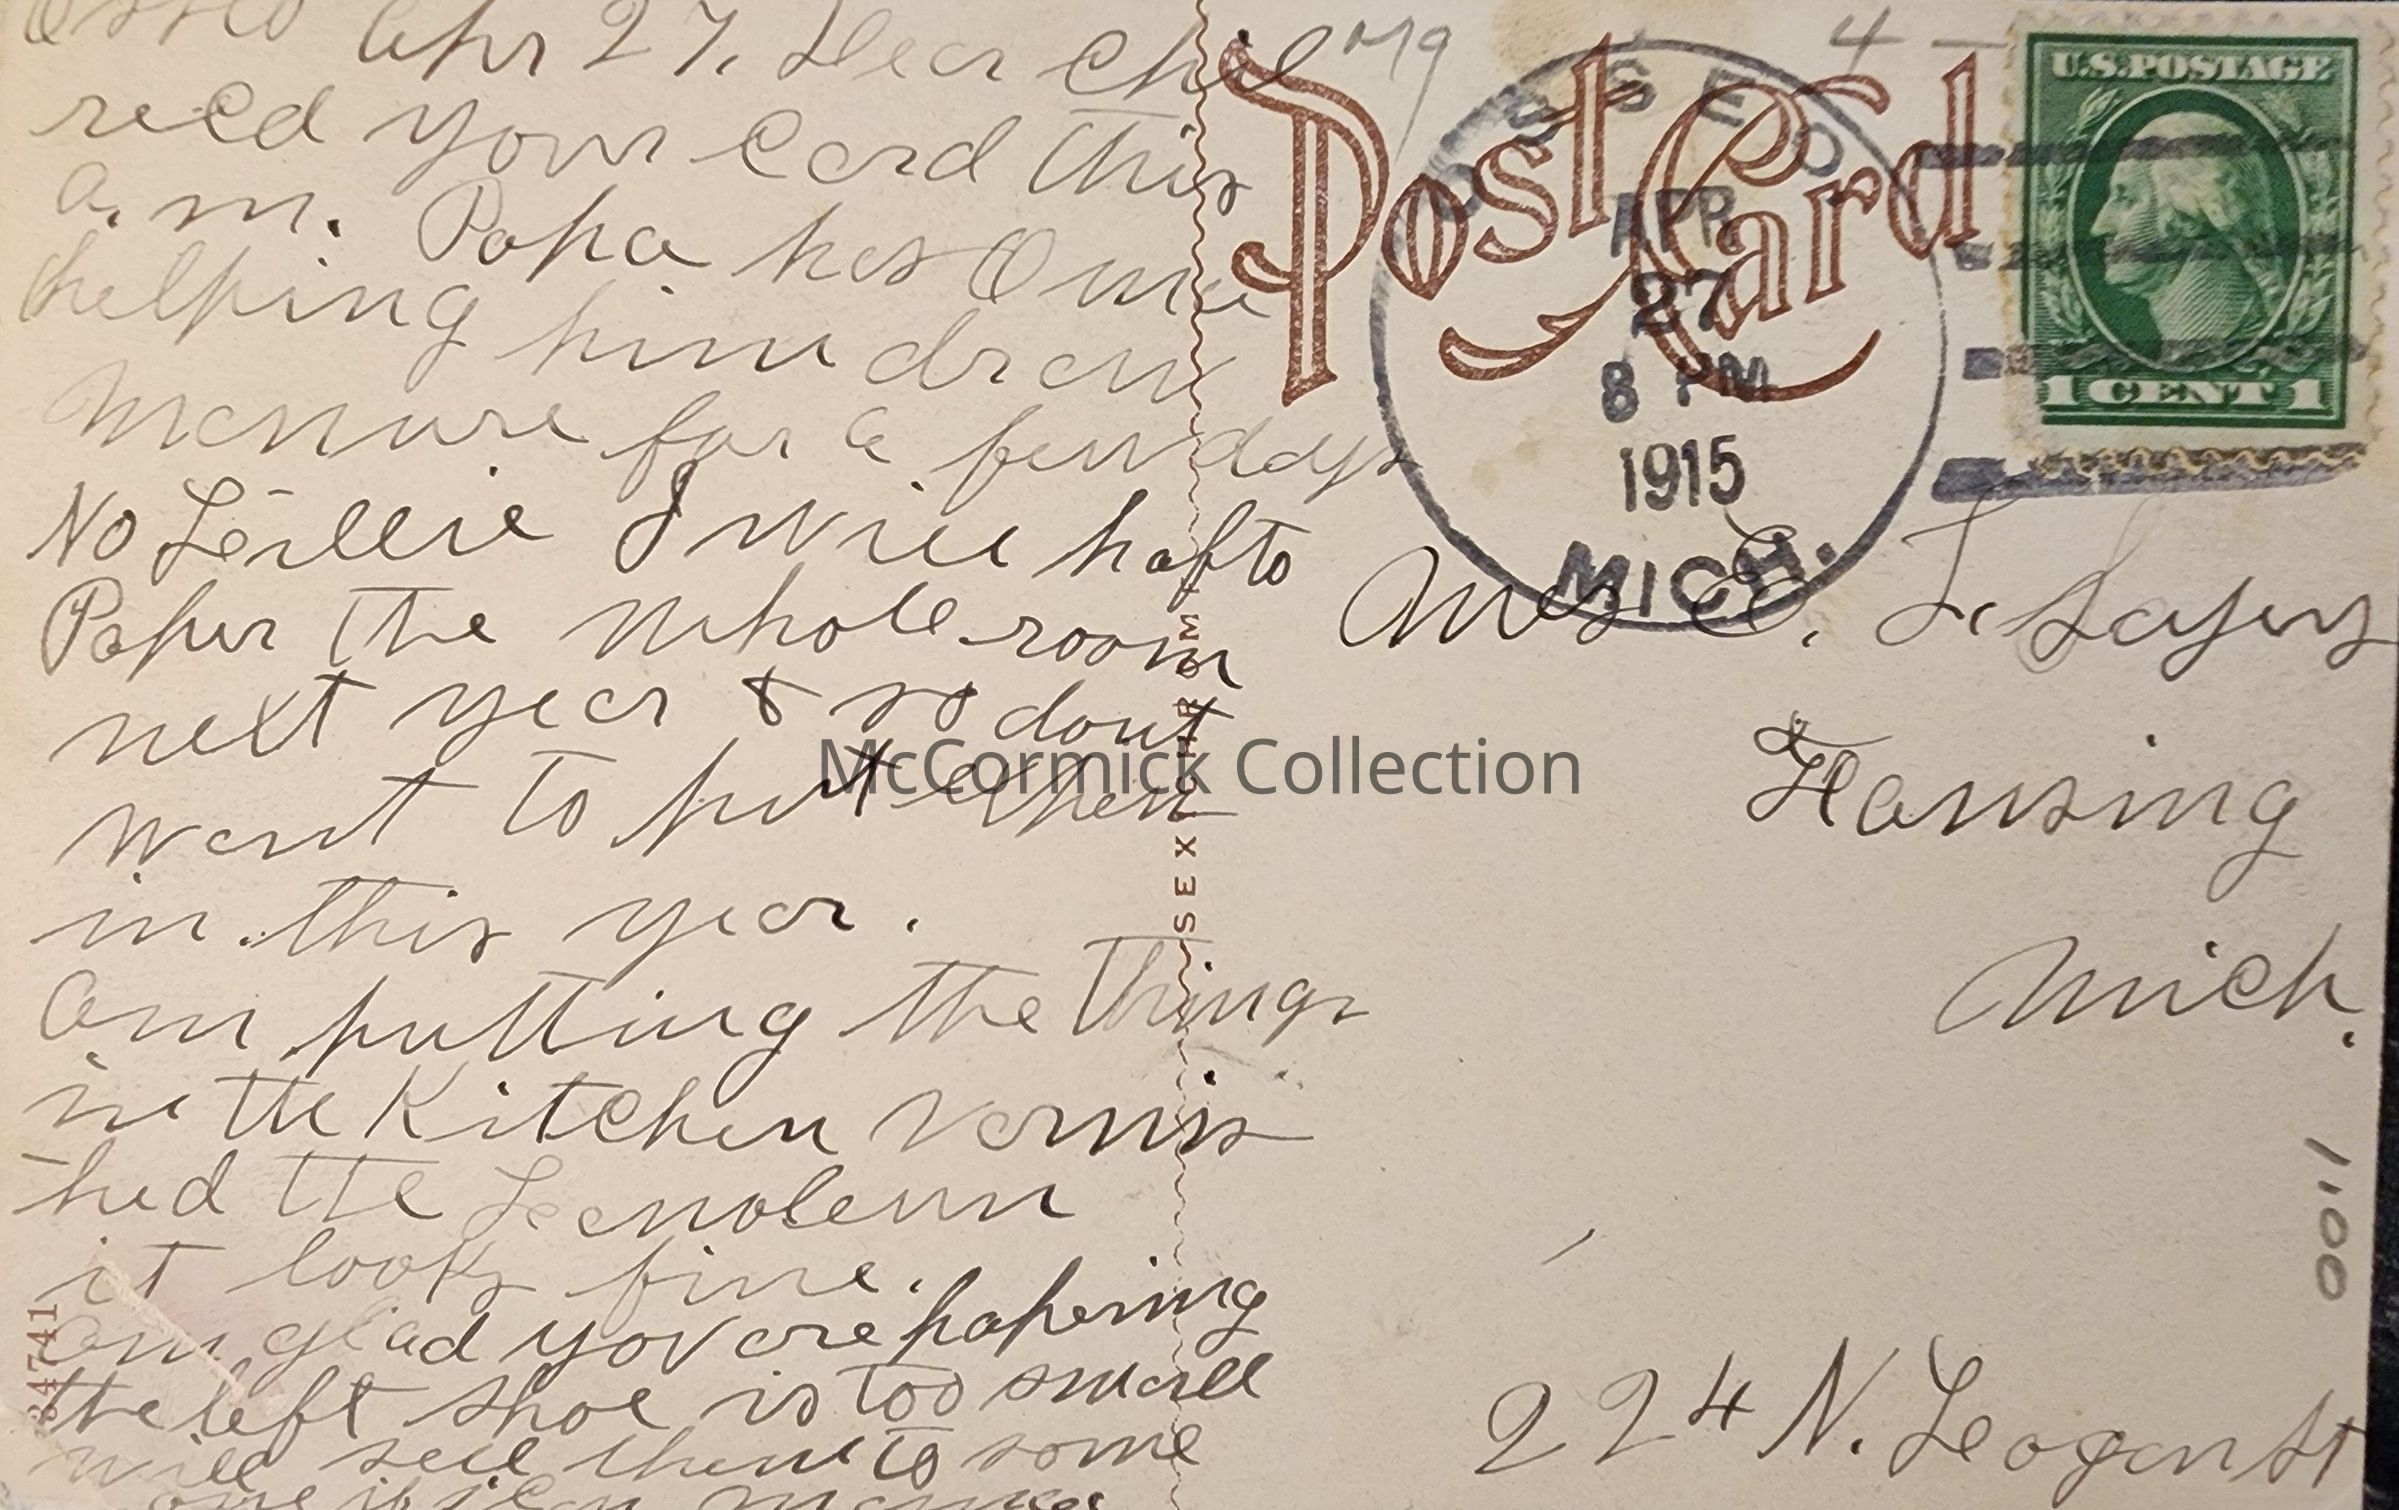 Osseo Apr 27. Dear Chil
recd your Card this
a.m. Papa has
helping him draw
Manure for a few days
No Leillie I will hafto
Paper the whole room
next year & so dont
want to put
in this year.
Am putting the things
in the Kitchen varnis
hed the
it looks fine.
am glad you are papering
the left shoe is too small
will sell them to some
one if I can
SEXICHROME
84741
Post Card
OSSEO
APR
27
8 PM
1915
MICH.
4 —
U.S. POSTAGE
1 CENT 1
Mrs C. L. Sayers
Lansing
Mich.
224 N. Leogan St
1100
McCormick Collection